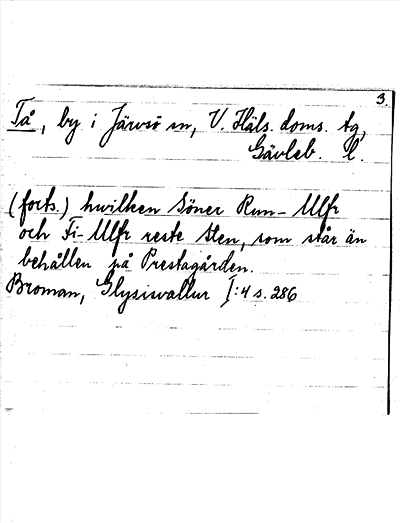 3.
Tå, by i Järvsö sn, V. Häls. doms. tg,
Gävleb. l.
(forts.) hwilken Söner Run-Ulfr
och Fi-Ulfr reste Sten, som står än
behållen på Prestagården.
Broman, Glysisvallur I:4 s. 286